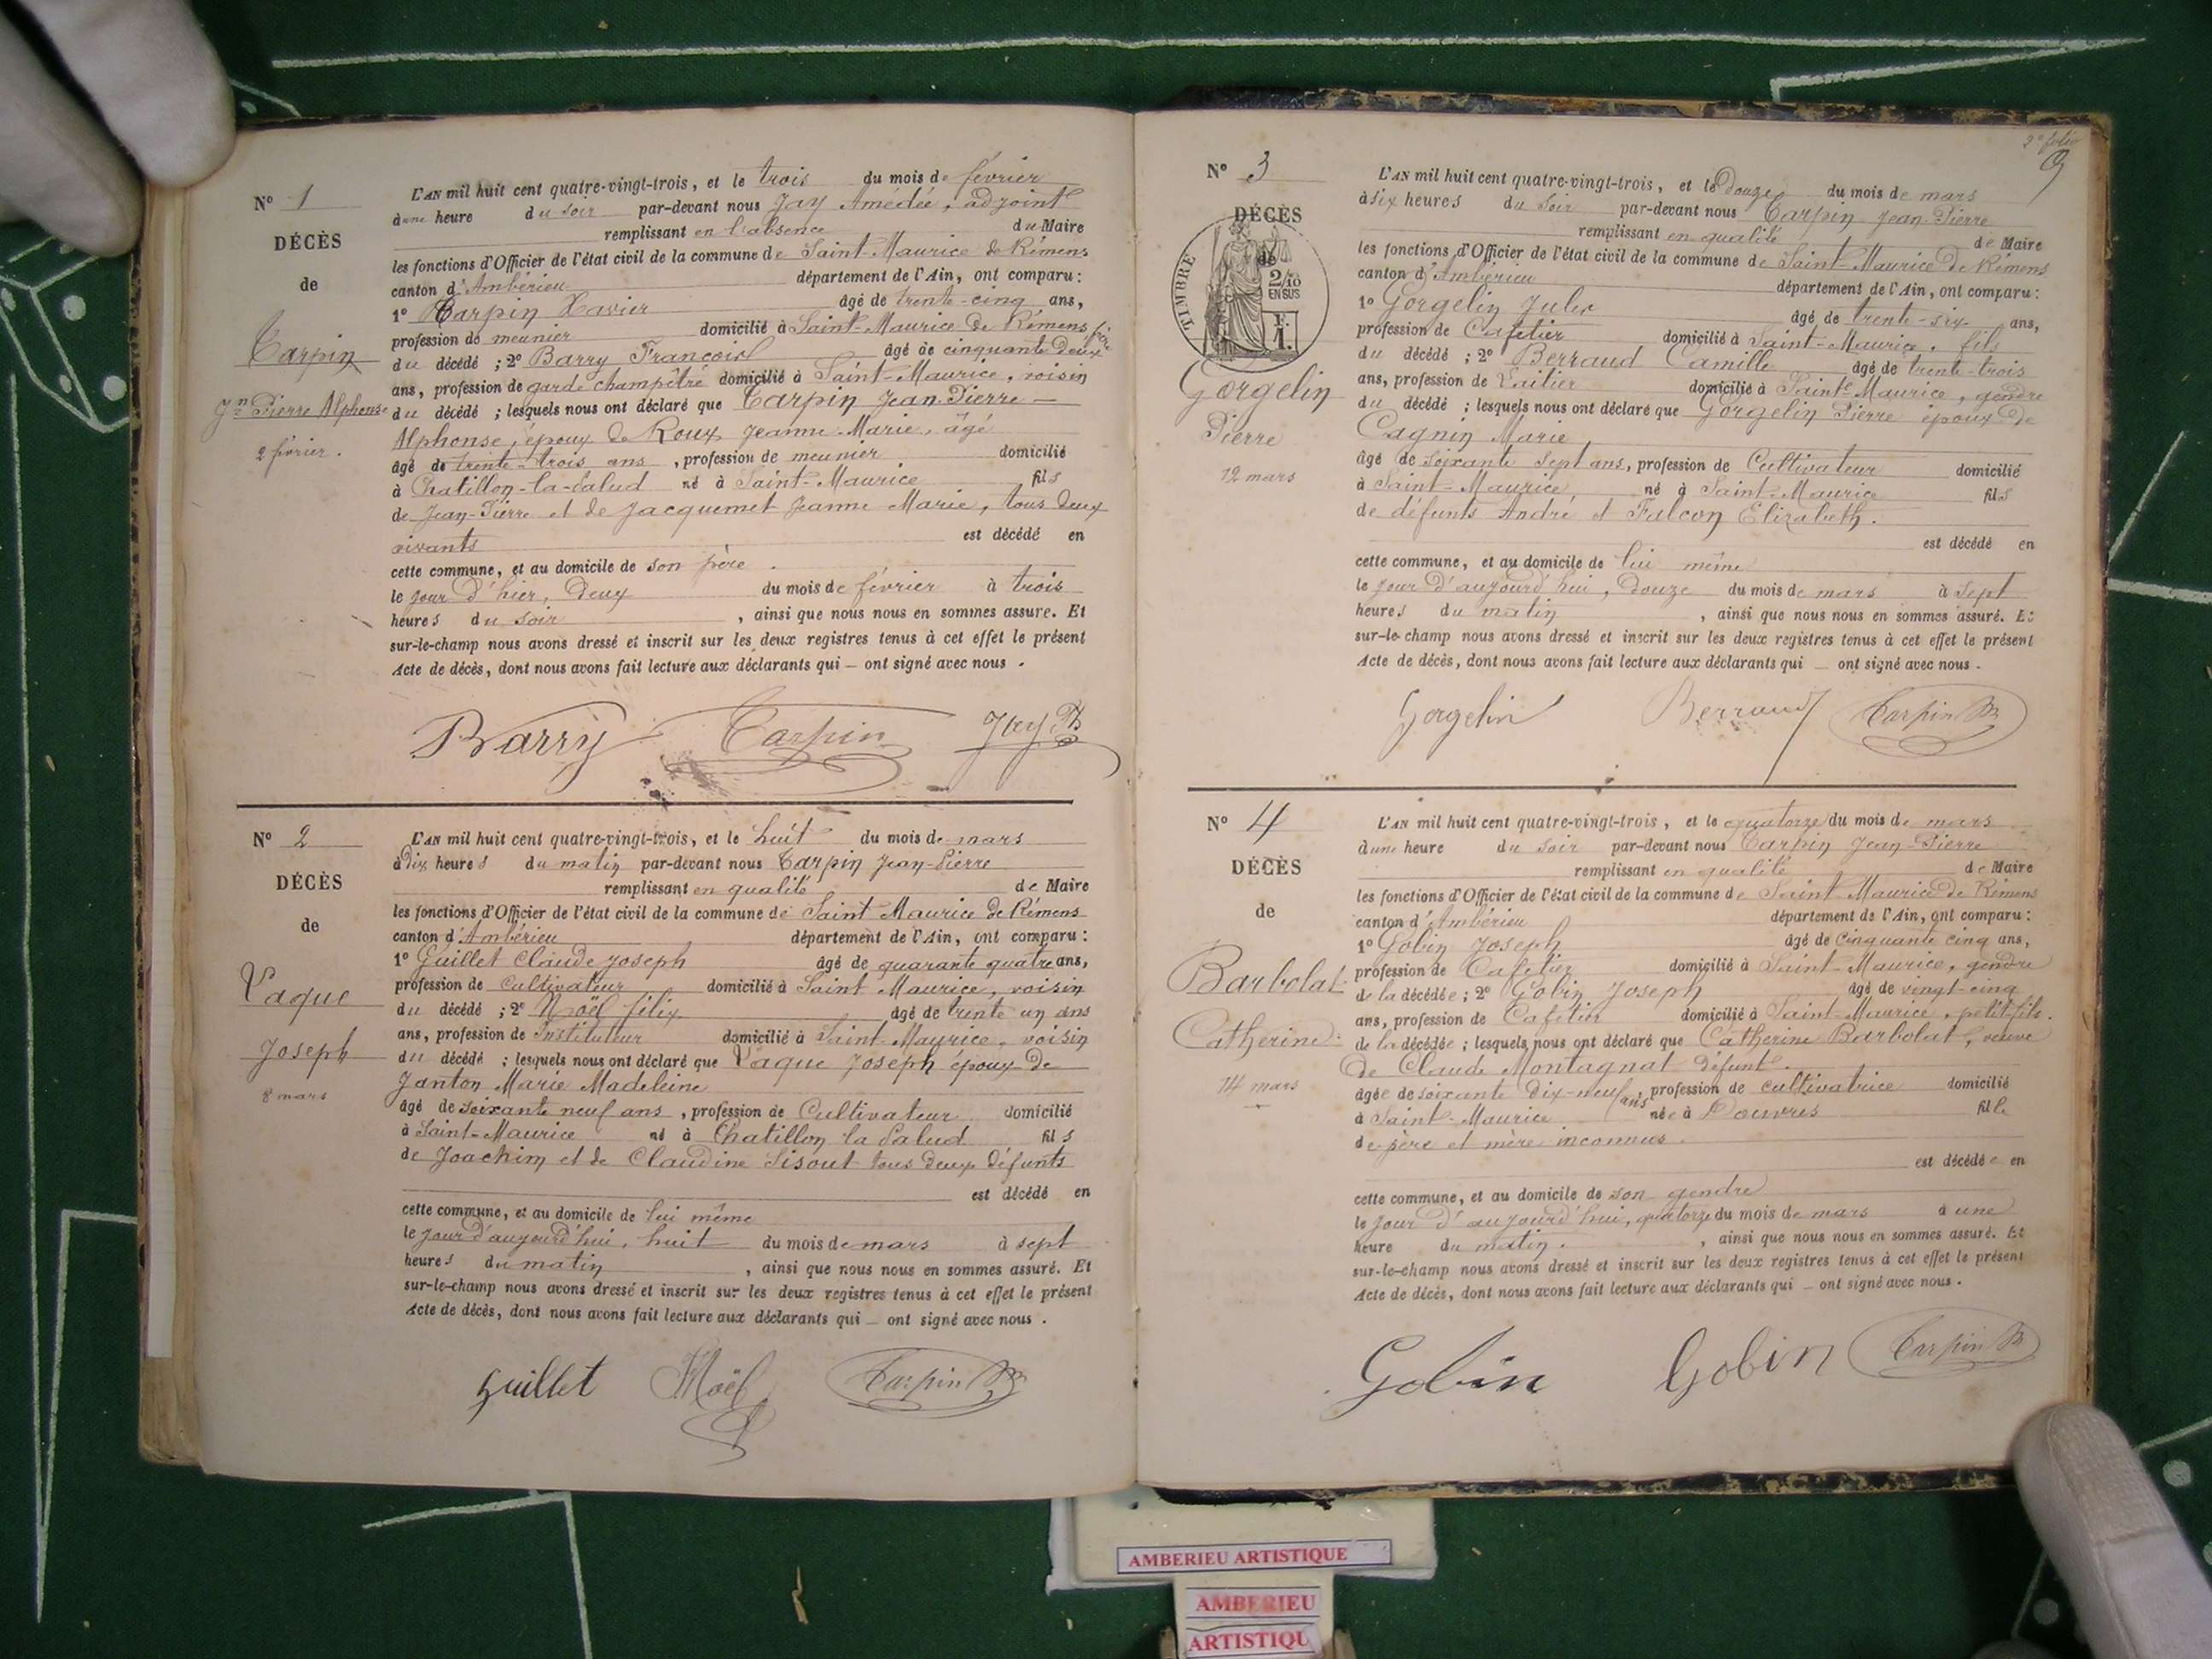 N° 1
DÉCÈS
de
Carpin
Jn Pierre Alphonse
2 février.
L'AN mil huit cent quatre-vingt-trois, et le trois du mois de février
à une heure du soir par-devant nous Jay Amédée, adjoint
remplissant en l'absence du Maire
les fonctions d'Officier de l'état civil de la commune de Saint-Maurice de Rémens
canton d'Ambérieu département de l'Ain, ont comparu :
1° Carpin Xavier âgé de trente-cinq ans,
profession de meunier domicilié à Saint-Maurice de Rémens frère
du décédé ; 2° Barry François âgé de cinquante deux
ans, profession de garde champêtre domicilié à Saint-Maurice, voisin
du décédé ; lesquels nous ont déclaré que Carpin Jean-Pierre
Alphonse, époux de Roux Jeanne-Marie, âgé
âgé de trente-trois ans, profession de meunier domicilié
à Chatillon-la-Palud né à Saint-Maurice fils
de Jean-Pierre et de Jacquemet Jeanne Marie, tous deux
vivants est décédé en
cette commune, et au domicile de son père.
le jour d'hier, deux du mois de février à trois
heures du soir, ainsi que nous nous en sommes assuré. Et
sur-le-champ nous avons dressé et inscrit sur les deux registres tenus à cet effet le présent
Acte de décès, dont nous avons fait lecture aux déclarants qui — ont signé avec nous.
Barry Carpin Jay
N° 2
DÉCÈS
de
Vaque
Joseph
8 mars
L'AN mil huit cent quatre-vingt-trois, et le huit du mois de mars
à dix heures du matin par-devant nous Carpin Jean-Pierre
remplissant en qualité de Maire
les fonctions d'Officier de l'état civil de la commune de Saint Maurice de Rémens
canton d'Ambérieu département de l'Ain, ont comparu :
1° Guillet Claude Joseph âgé de quarante quatre ans,
profession de Cultivateur domicilié à Saint Maurice, voisin
du décédé ; 2° Noël Félix âgé de trente un ans
ans, profession de Instituteur domicilié à Saint-Maurice, voisin
du décédé ; lesquels nous ont déclaré que Vaque Joseph époux de
Janton Marie Madeleine
âgé de soixante neuf ans, profession de Cultivateur domicilié
à Saint-Maurice né à Chatillon la Palud fils
de Joachim et de Claudine Sisout tous deux défunts
est décédé en
cette commune, et au domicile de lui même
le jour d'aujourd'hui, huit du mois de mars à sept
heures du matin, ainsi que nous nous en sommes assuré. Et
sur-le-champ nous avons dressé et inscrit sur les deux registres tenus à cet effet le présent
Acte de décès, dont nous avons fait lecture aux déclarants qui — ont signé avec nous.
Guillet Noël Carpin
2e folio
N° 3
DÉCÈS
de
TIMBRE
2/10
EN SUS
F.
1.
Gorgelin
Pierre
12 mars
L'AN mil huit cent quatre-vingt-trois, et le douze du mois de mars
à six heures du soir par-devant nous Carpin Jean-Pierre
remplissant en qualité de Maire
les fonctions d'Officier de l'état civil de la commune de Saint-Maurice de Rémens
canton d'Ambérieu département de l'Ain, ont comparu :
1° Gorgelin Jules âgé de trente-six ans,
profession de Cafetier domicilié à Saint-Maurice, fils
du décédé ; 2° Berraud Camille âgé de trente-trois
ans, profession de Laitier domicilié à Saint-Maurice, gendre
du décédé ; lesquels nous ont déclaré que Gorgelin Pierre époux de
Cagnin Marie
âgé de soixante sept ans, profession de Cultivateur domicilié
à Saint-Maurice né à Saint-Maurice fils
de défunts André et Falcon Elizabeth.
est décédé en
cette commune, et au domicile de lui même
le jour d'aujourd'hui, douze du mois de mars à sept
heures du matin, ainsi que nous nous en sommes assuré. Et
sur-le-champ nous avons dressé et inscrit sur les deux registres tenus à cet effet le présent
Acte de décès, dont nous avons fait lecture aux déclarants qui — ont signé avec nous.
Gorgelin Berraud Carpin
N° 4
DÉCÈS
de
Barbolat
Catherine
14 mars
L'AN mil huit cent quatre-vingt-trois, et le quatorze du mois de mars
à une heure du soir par-devant nous Carpin Jean-Pierre
remplissant en qualité de Maire
les fonctions d'Officier de l'état civil de la commune de Saint Maurice de Rémens
canton d'Ambérieu département de l'Ain, ont comparu :
1° Gobin Joseph âgé de cinquante cinq ans,
profession de Cafetier domicilié à Saint-Maurice, gendre
de la décédée ; 2° Gobin Joseph âgé de vingt-cinq
ans, profession de Cafetier domicilié à Saint-Maurice, petit-fils.
de la décédée ; lesquels nous ont déclaré que Catherine Barbolat, veuve
de Claude Montagnat défunt.
âgée de soixante dix-neuf ans profession de cultivatrice domicilié
à Saint-Maurice née à Douvres fille
de père et mère inconnus.
est décédée en
cette commune, et au domicile de son gendre
le jour d'aujourd'hui, quatorze du mois de mars à une
heure du matin., ainsi que nous nous en sommes assuré. Et
sur-le-champ nous avons dressé et inscrit sur les deux registres tenus à cet effet le présent
Acte de décès, dont nous avons fait lecture aux déclarants qui — ont signé avec nous.
Gobin Gobin Carpin
AMBERIEU ARTISTIQUE
AMBERIEU
ARTISTIQU